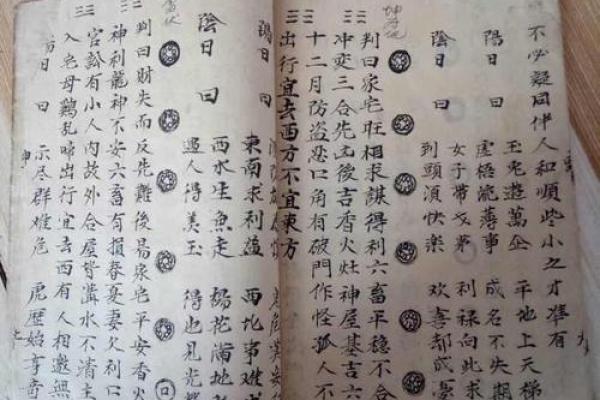 不必疑同伴人和順些小之才準有
陽日曰
玉兔遊萬企 平地上天梯
虛語流薄事 成名不失期
陰日曰
女子帶文弟 利禄向此求
到頭須快樂 欢喜却成
判曰家宅旺相求謀得利六畜平穩不合
冲变三合先凶後吉香火灶神屋基吉六
十二月防盗恶口角有破門作怪孤人不
出行宜去西方不宜東方
陽日曰
東南求利益 西北事难
陰日曰
西水生魚走 楊花滿地
遇人得美玉 得也見光
判曰財失而反先難後易家宅平安香火
神利龍神不安六畜有損春憂妻欠利口
官訟有小人內故外合屋背溝水不清主
入宅母鷄乱啼出行宜去西有人相邀無
日曰
示尽群难危 虎歷始